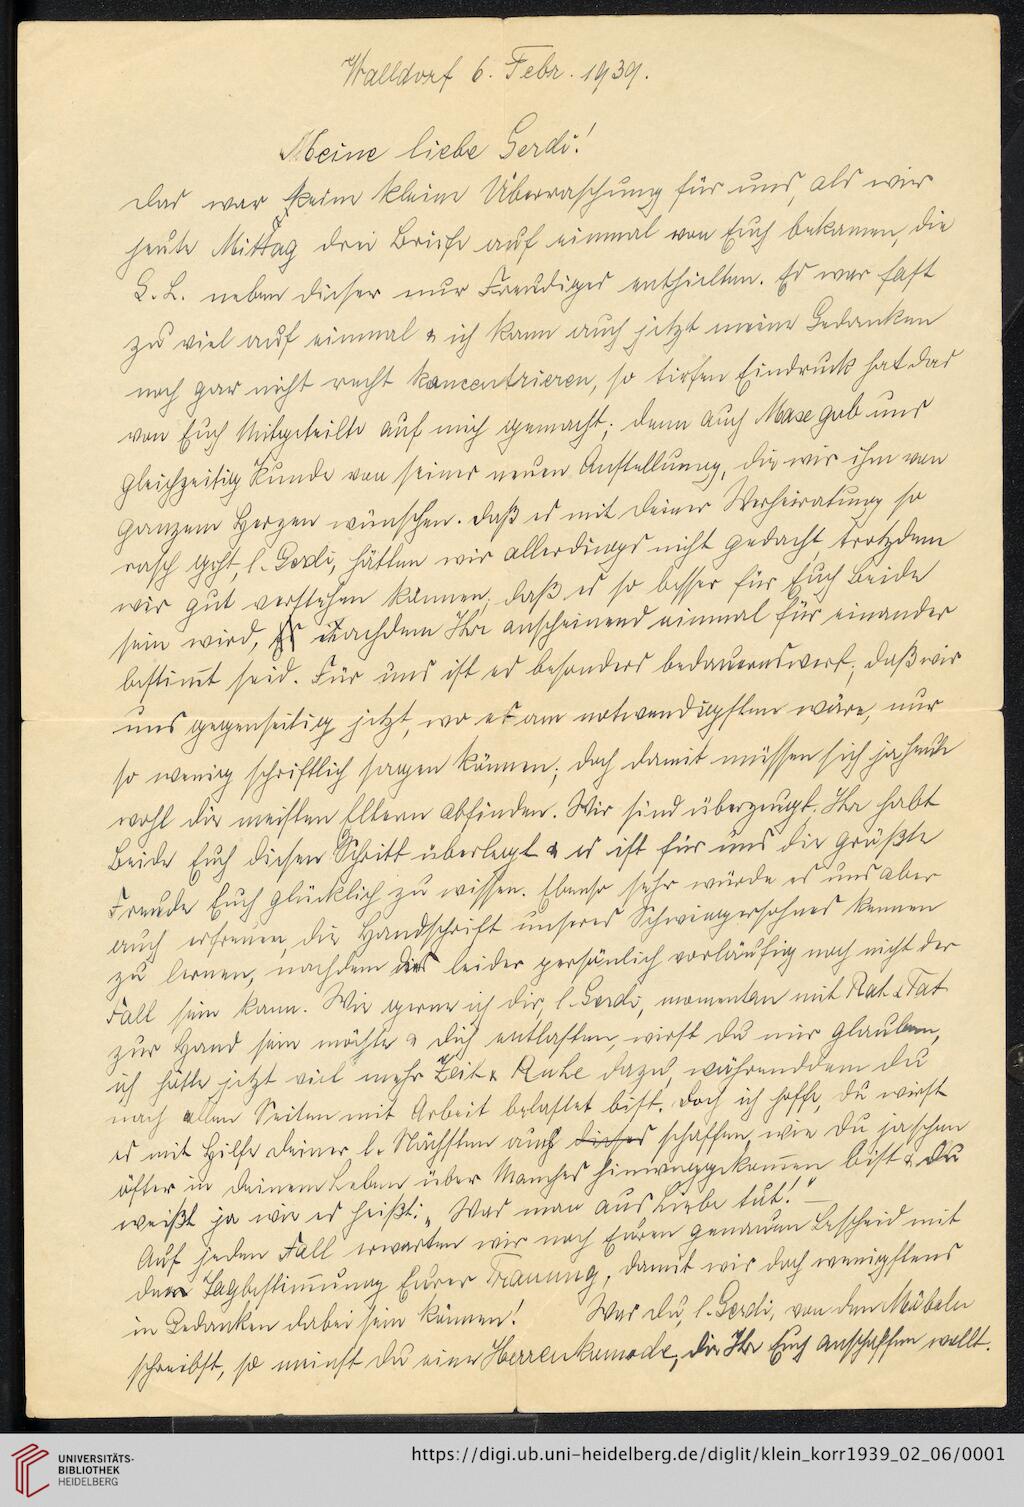 Walldorf 6. Febr. 1939.
Meine liebe Gerdi!
Das war keine kleine Überraschung für uns, als wir
heute Mittag drei Briefe auf einmal von Euch bekamen, die
G. L. neben dieser nur Freudiges enthielten. Es war fast
zu viel auf einmal & ich kann auch jetzt meine Gedanken
noch gar nicht recht konzentrieren, so tiefen Eindruck hat das
von Euch Mitgeteilte auf mich gemacht; denn auch Maxe gab uns
gleichzeitig Kunde von seiner neuen Anstellung, die wir ihm von
ganzem Herzen wünschen. Daß es mit Deiner Verheiratung so
rasch geht, l. Gerdi, hätten wir allerdings nicht gedacht, trotzdem
wir gut verstehen können, daß es so besser für Euch Beide
sein wird, nachdem Ihr anscheinend einmal für einander
bestimmt seid. Für uns ist es besonders bedauernswert, daß wir
uns gegenseitig jetzt, wo es am notwendigsten wäre, nur
so wenig schriftlich sagen können; doch damit müssen sich ja heute
wohl die meisten Eltern abfinden. Wir sind überzeugt, Ihr habt
Beide Euch diesen Schritt überlegt & es ist für uns die größte
Freude Euch glücklich zu wissen. Ebenso sehr würde es uns aber
auch erfreuen, die Handschrift unseres Schwiegersohnes kennen
zu lernen, nachdem dies leider persönlich vorläufig noch nicht der
Fall sein kann. Wie gerne ich dir, l. Gerdi, momentan mit Rat & Tat
zur Hand sein möchte & dich entlasten, wirst du mir glauben,
ich hätte jetzt viel mehr Zeit & Ruhe dazu, währenddem du
nach allen Seiten mit Arbeit belastet bist. Doch ich hoffe, du wirst
es mit Hilfe deiner l. Nächsten auch dieses schaffen, wie du ja schon
öfter in deinem Leben über Manches hinweggekommen bist & du
weißt ja wie es heißt: „Was man aus Liebe tut!" –
Auf jeden Fall erwarten wir noch Euren genauen Bescheid mit
der Tagbestimmung Eurer Trauung, damit wir doch wenigstens
in Gedanken dabei sein können! Was du, l. Gerdi, von den Möbeln
schreibst, so meinst du eine Herrenkomode, die Ihr Euch anschaffen wollt.
UNIVERSITÄTS-
BIBLIOTHEK
HEIDELBERG
https://digi.ub.uni-heidelberg.de/diglit/klein_korr1939_02_06/0001